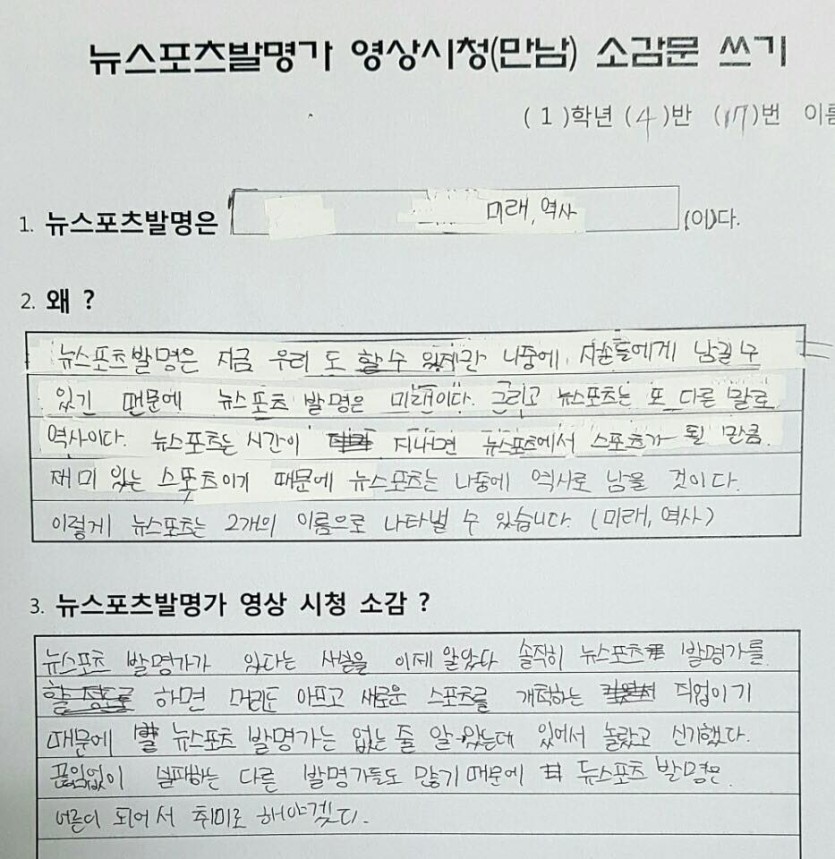 뉴스포츠발명가 영상시청(만남) 소감문 쓰기
( 1 )학년 ( 4 )반 ( 17 )번 이름
1. 뉴스포츠발명은 미래, 역사 (이)다.
2. 왜 ?
뉴스포츠발명은 지금 우리 도 할 수 있지만 나중에 자손들에게 남길 수
있기 때문에 뉴스포츠 발명은 미래이다. 그리고 뉴스포츠는 또 다른 말로
역사이다. 뉴스포츠는 시간이 지나면 뉴스포츠에서 스포츠가 될 만큼
재미 있는 스포츠이기 때문에 뉴스포츠는 나중에 역사로 남을 것이다.
이렇게 뉴스포츠는 2개의 이름으로 나타낼 수 있습니다. (미래, 역사)
3. 뉴스포츠발명가 영상 시청 소감 ?
뉴스포츠 발명가가 있다는 사실을 이제 알았다 솔직히 뉴스포츠 발명가를
하면 머리도 아프고 새로운 스포츠를 개척하는 직업이기
때문에 뉴스포츠 발명가는 없는 줄 알았는데 있어서 놀랐고 신기했다.
끊임없이 실패하는 다른 발명가들도 많기 때문에 뉴스포츠 발명은
어른이 되어서 취미로 해야겠다.